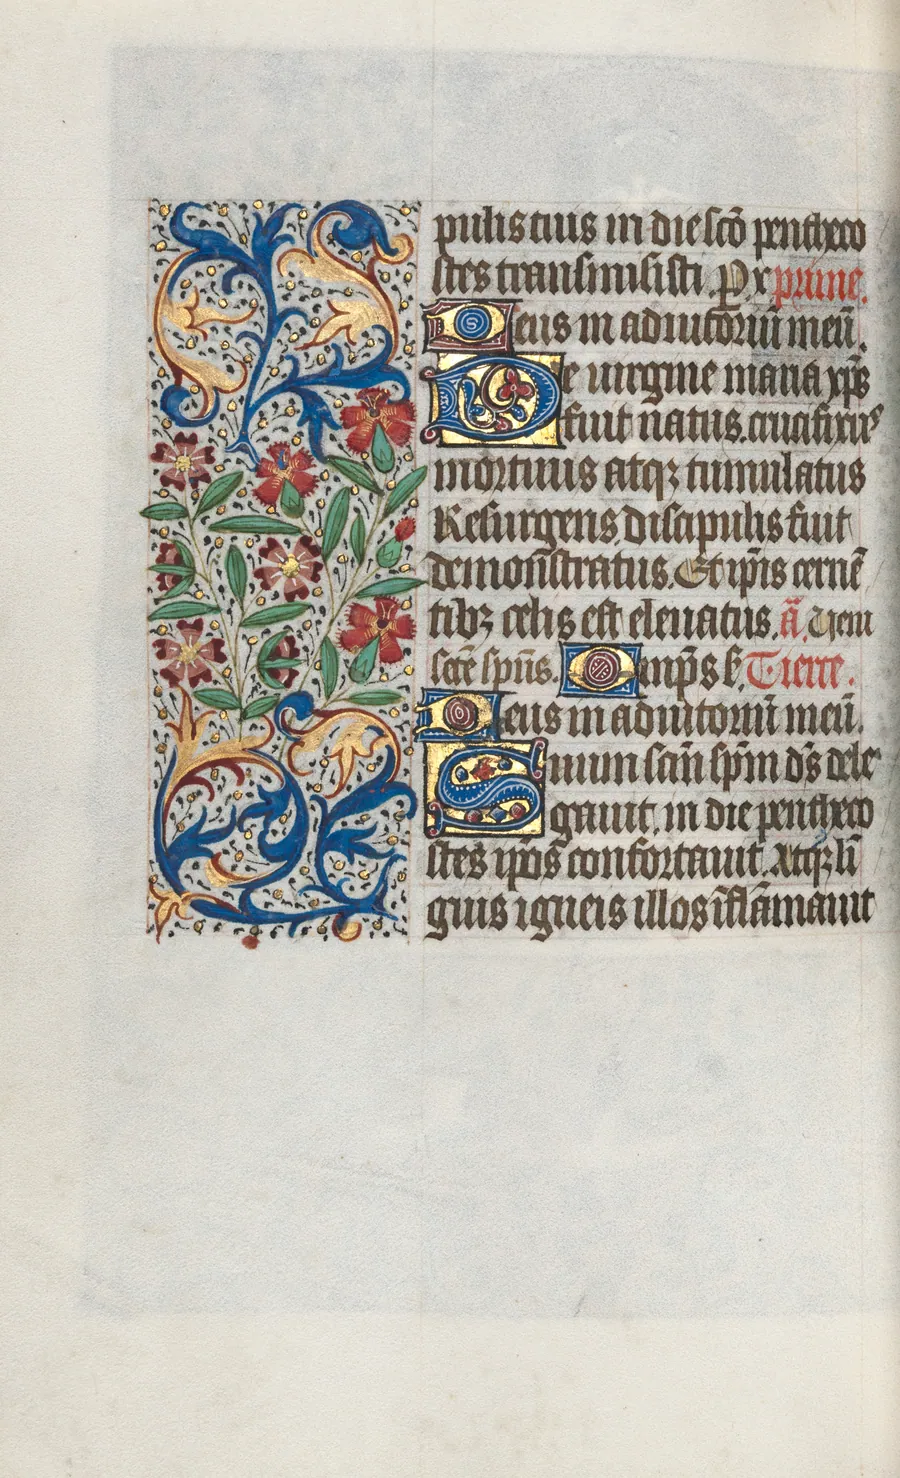 pulis tuis in die scō pentheco
stes transmisisti. Px prime.
Deus in adiutoriū meū.
De virgine maria xp̄s
fuit natus. crucifixus
mortuus atqꝫ tumulatus
Resurgens discipulis fuit
demonstratus. Et ip̄is cernē
tibꝫ celis est eleuatus. ā. Veni
scē sp̄us. Oēmp̄s ß. Tierce.
Deus in adiutoriū meū.
Suum scm̄ sp̄m dn̄s dele
gauit. in die pentheco
stes ip̄os confortauit. Atqꝫ lī
guis igneis illos īflāmauit